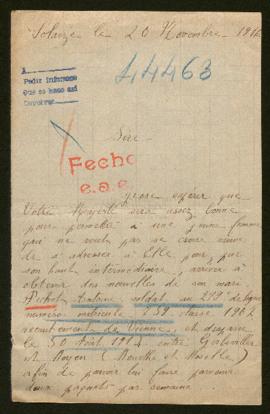 Solaize le 20 Novembre 191
44463
Pedir informes
Que se haga así
Devolver
Sire
Fecho
e.a.e
J'ose espérer que
Votre Majesté sera assez bonne
pour permettre à une jeune femme
qui ne veut pas se croire veuve
de s'adresser à Elle pour, par
son haut intermédiaire, arriver à
obtenir des nouvelles de son mari
Antoine soldat au 299 de ligne
numéro matricule classe 1907
recrutement de Vienne, et disparu
le 30 Août 1914 entre Gerbéviller
et Moyen (Meurthe et Moselle)
afin de pouvoir lui faire parvenir
deux paquets par semaine